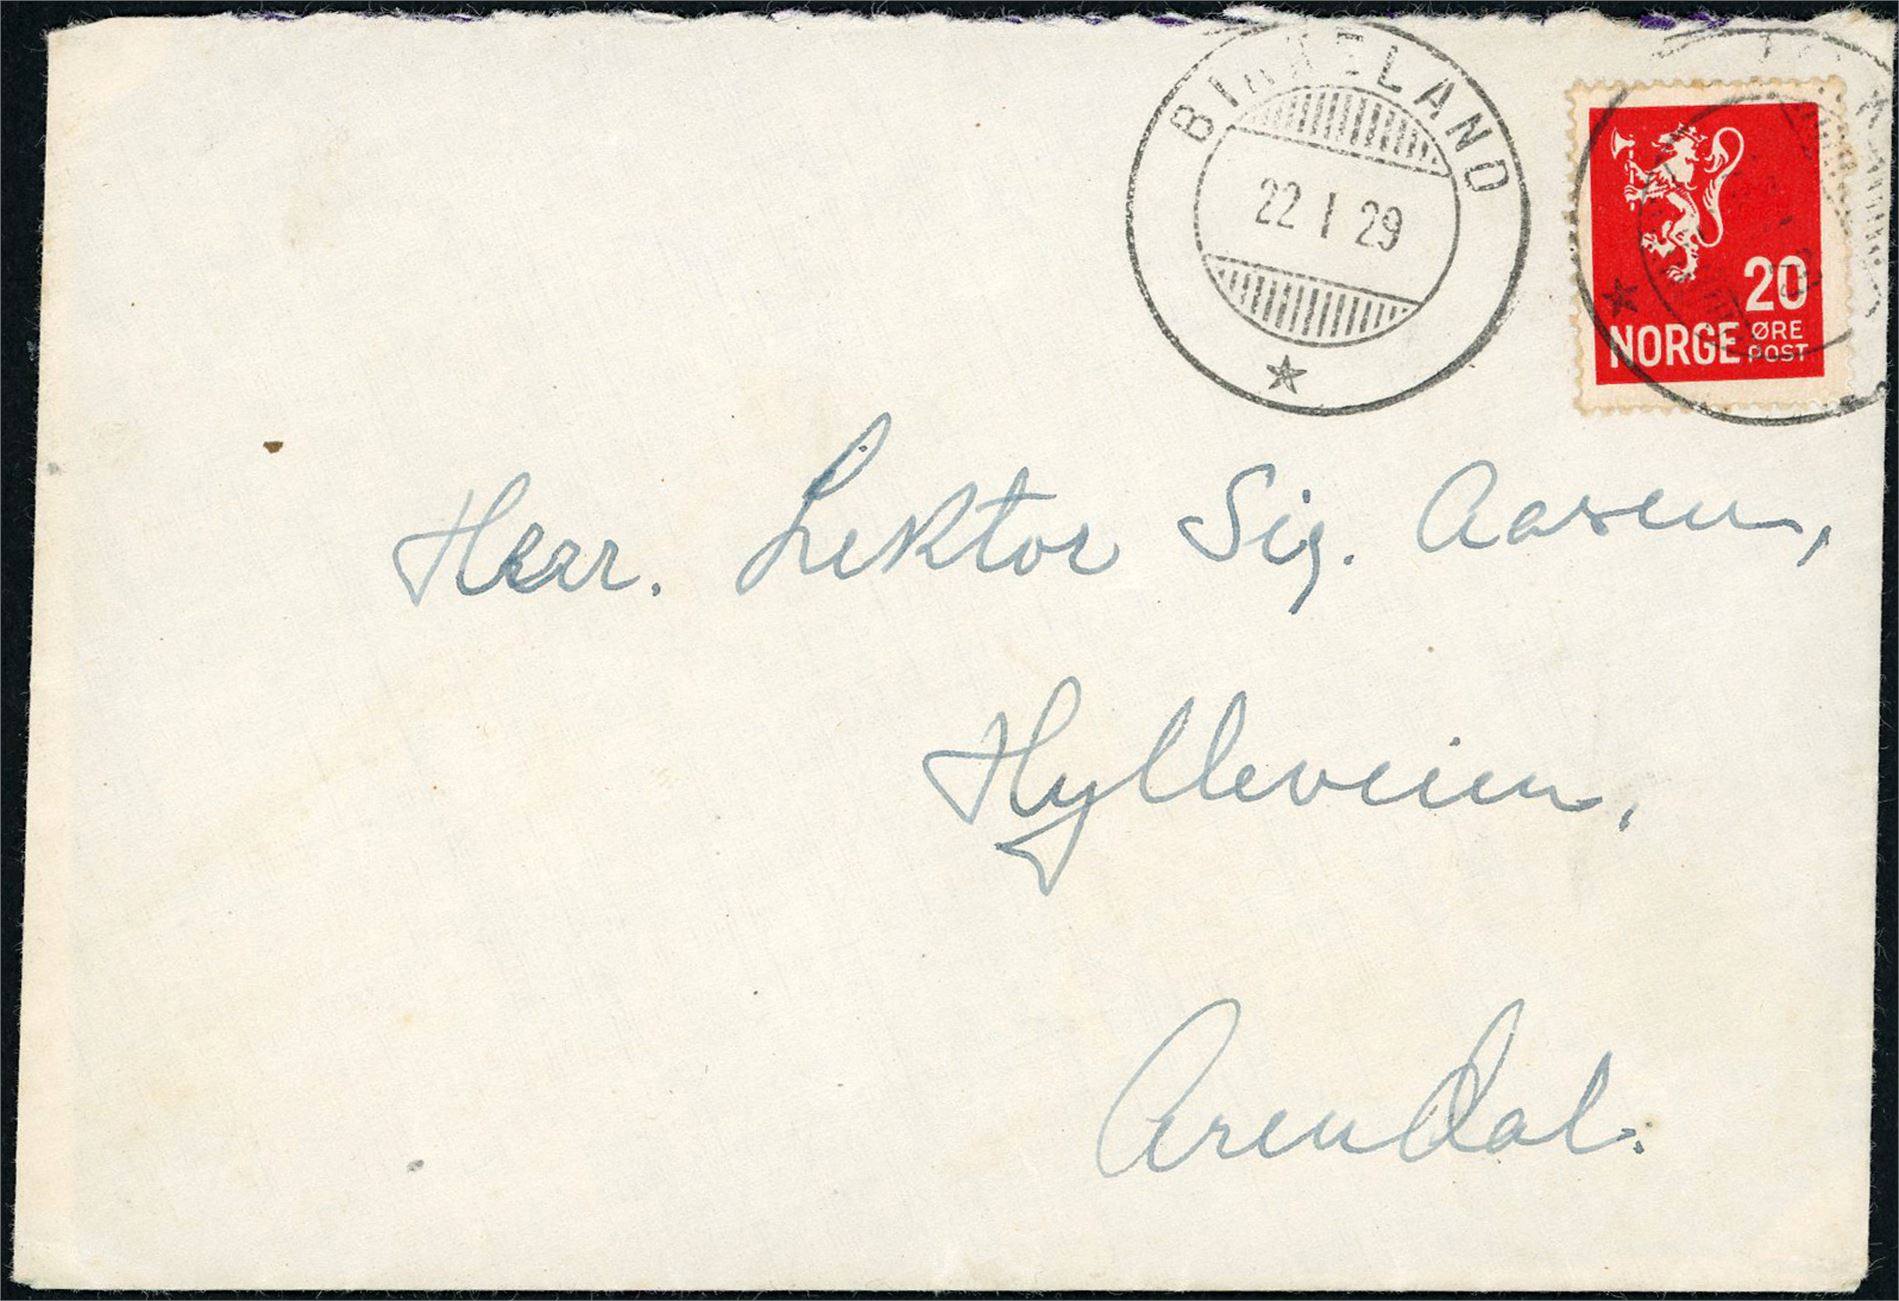 BIRKELAND
22 I 29
20
NORGE ØRE
POST
Herr. Lektor Sig. Aasen,
Hylleveien,
Arendal.